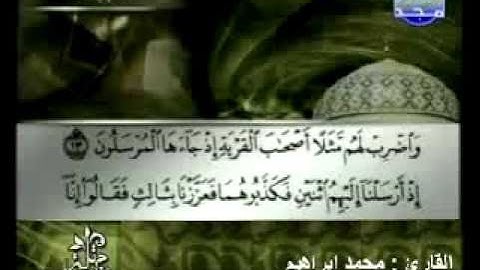 مجد
وَاضْرِبْ لَهُم مَّثَلًا أَصْحَابَ الْقَرْيَةِ إِذْ جَاءَهَا الْمُرْسَلُونَ ١٣
إِذْ أَرْسَلْنَا إِلَيْهِمُ اثْنَيْنِ فَكَذَّبُوهُمَا فَعَزَّزْنَا بِثَالِثٍ فَقَالُوا إِنَّا
القارئ : محمد ابراهيم